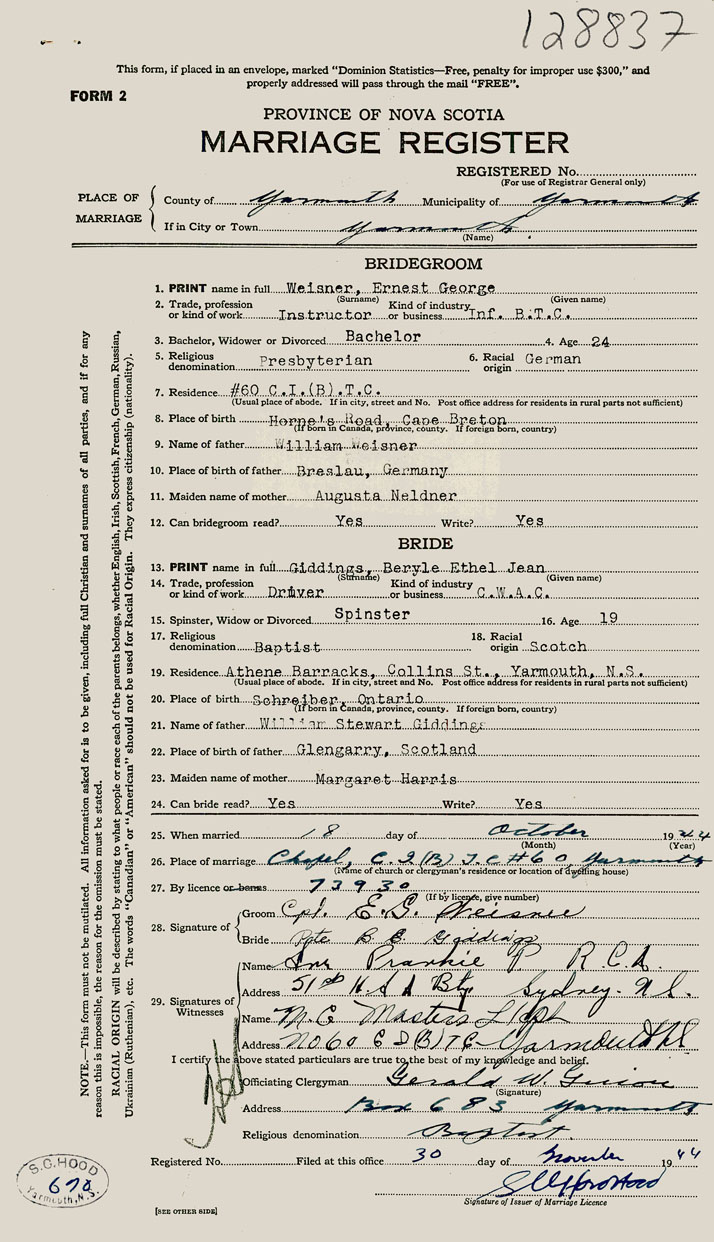 128837
This form, if placed in an envelope, marked "Dominion Statistics—Free, penalty for improper use $300," and
properly addressed will pass through the mail "FREE".
FORM 2
PROVINCE OF NOVA SCOTIA
MARRIAGE REGISTER
REGISTERED No.
(For use of Registrar General only)
PLACE OF MARRIAGE
County of Yarmouth Municipality of Yarmouth
If in City or Town Yarmouth
(Name)
BRIDEGROOM
1. PRINT name in full Weisner, Ernest George
(Surname) (Given name)
2. Trade, profession or kind of work Instructor Kind of industry or business Inf. B.T.C.
3. Bachelor, Widower or Divorced Bachelor 4. Age 24
5. Religious denomination Presbyterian 6. Racial origin German
7. Residence #60 C.I.(B).T.C.
(Usual place of abode. If in city, street and No. Post office address for residents in rural parts not sufficient)
8. Place of birth Horne's Road, Cape Breton
(If born in Canada, province, county. If foreign born, country)
9. Name of father William Weisner
10. Place of birth of father Breslau, Germany
11. Maiden name of mother Augusta Neldner
12. Can bridegroom read? Yes Write? Yes
BRIDE
13. PRINT name in full Giddings, Beryle Ethel Jean
(Surname) (Given name)
14. Trade, profession or kind of work Driver Kind of industry or business C.W.A.C.
15. Spinster, Widow or Divorced Spinster 16. Age 19
17. Religious denomination Baptist 18. Racial origin Scotch
19. Residence Athene Barracks, Collins St., Yarmouth, N.S.
(Usual place of abode. If in city, street and No. Post office address for residents in rural parts not sufficient)
20. Place of birth Schreiber, Ontario
(If born in Canada, province, county. If foreign born, country)
21. Name of father William Stewart Giddings
22. Place of birth of father Glengarry, Scotland
23. Maiden name of mother Margaret Harris
24. Can bride read? Yes Write? Yes
25. When married 18 day of October 1944
(Month) (Year)
26. Place of marriage Chapel, C.I(B)T.C #60 Yarmouth
(Name of church or clergyman's residence or location of dwelling house)
27. By licence or banns 73930
(If by licence, give number)
28. Signature of
Groom Cpl. E.G. Weisner
Bride Pte B E Giddings
29. Signatures of Witnesses
Name Frankie P R.C.A.
Address 51st H.A.A Bty Sydney. N.S.
Name M.C. Masters L/Cpl
Address No 60 C I (B) TC Yarmouth N.S.
I certify the above stated particulars are true to the best of my knowledge and belief.
Officiating Clergyman Gerald W. Guiou
(Signature)
Address Box 683 Yarmouth
Religious denomination Baptist.
Registered No. Filed at this office 30 day of November 1944
Signature of Issuer of Marriage Licence
[SEE OTHER SIDE]
S.C. HOOD
678
Yarmouth, N.S.
NOTE.—This form must not be mutilated. All information asked for is to be given, including full Christian and surnames of all parties, and if for any
reason this is impossible, the reason for the omission must be stated.
RACIAL ORIGIN will be described by stating to what people or race each of the parents belongs, whether English, Irish, Scottish, French, German, Russian,
Ukrainian (Ruthenian), etc. The words "Canadian" or "American" should not be used for Racial Origin. They express citizenship (nationality).